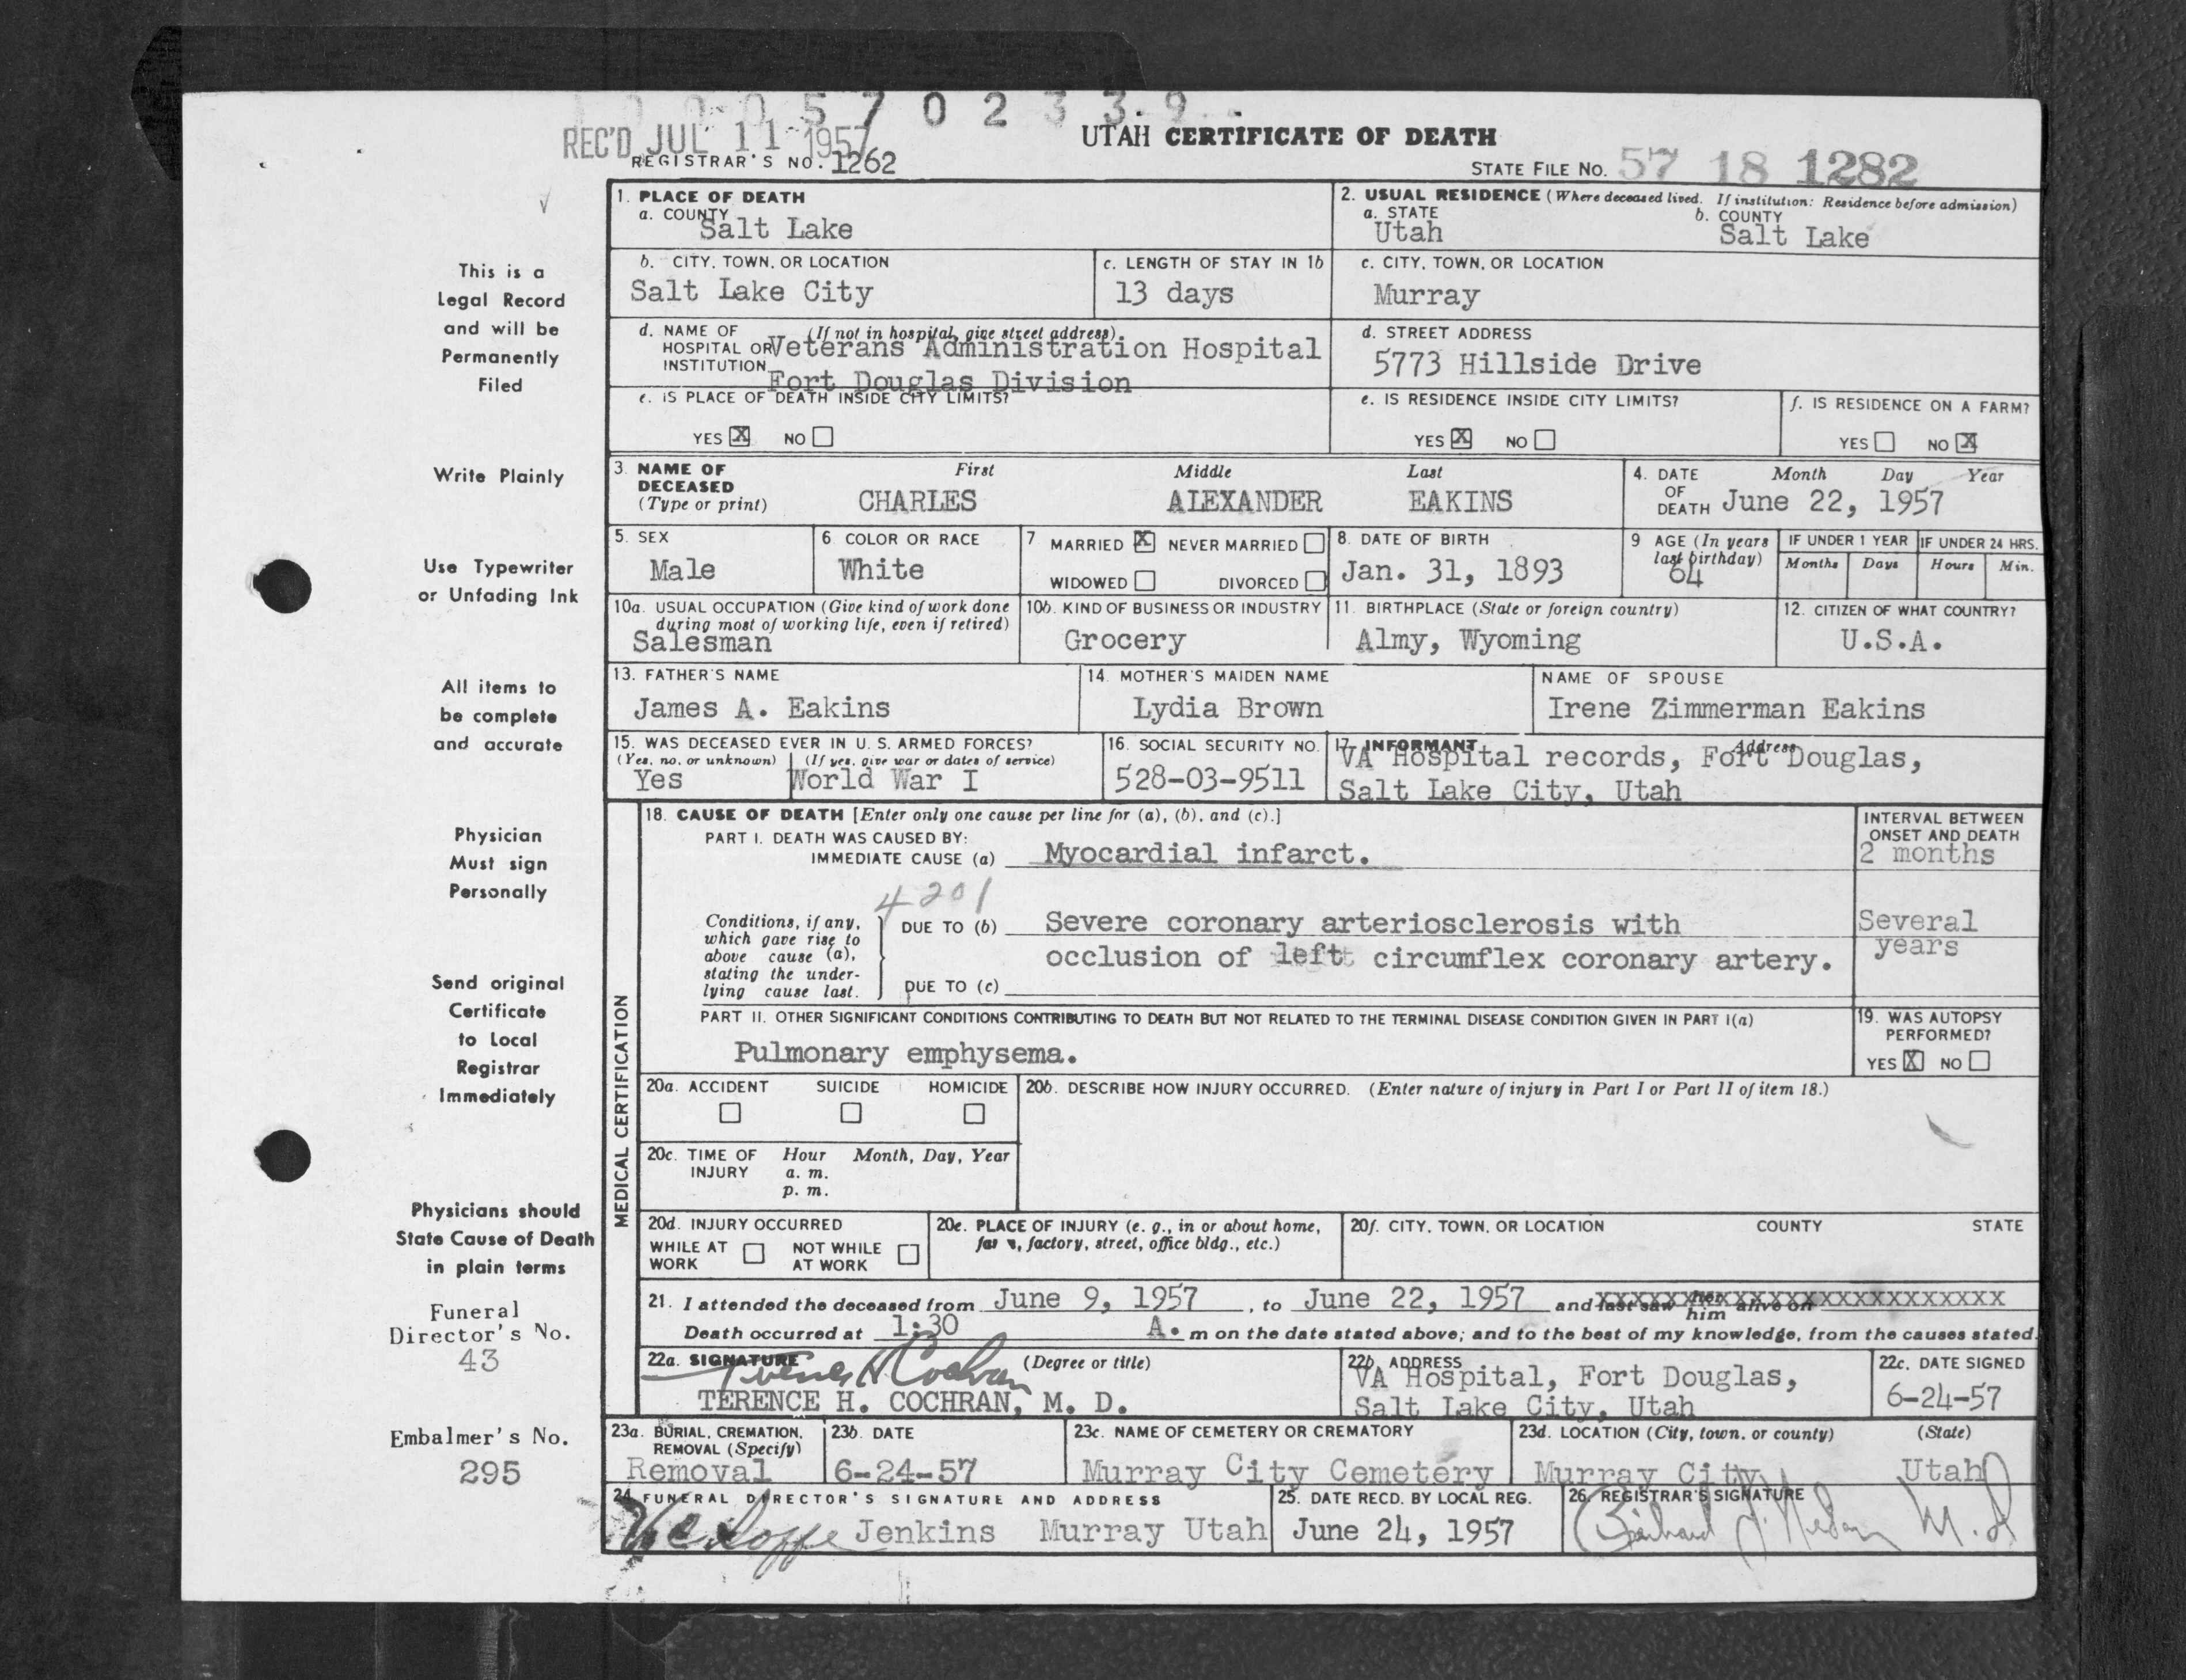 1 0 0 0 5 7 0 2 3 3 9
REC'D JUL 11 1957
UTAH CERTIFICATE OF DEATH
REGISTRAR'S NO. 1262
STATE FILE No. 57 18 1282
1. PLACE OF DEATH
a. COUNTY
Salt Lake
2. USUAL RESIDENCE (Where deceased lived. If institution: Residence before admission)
a. STATE
Utah
b. COUNTY
Salt Lake
b. CITY, TOWN, OR LOCATION
Salt Lake City
c. LENGTH OF STAY IN 1b
13 days
c. CITY, TOWN, OR LOCATION
Murray
d. NAME OF HOSPITAL OR INSTITUTION (If not in hospital, give street address)
Veterans Administration Hospital
Fort Douglas Division
d. STREET ADDRESS
5773 Hillside Drive
e. IS PLACE OF DEATH INSIDE CITY LIMITS?
YES X NO
e. IS RESIDENCE INSIDE CITY LIMITS?
YES X NO
f. IS RESIDENCE ON A FARM?
YES NO X
3. NAME OF DECEASED (Type or print)
First Middle Last
CHARLES ALEXANDER EAKINS
4. DATE OF DEATH Month Day Year
June 22, 1957
5. SEX
Male
6. COLOR OR RACE
White
7 MARRIED X NEVER MARRIED
WIDOWED DIVORCED
8. DATE OF BIRTH
Jan. 31, 1893
9 AGE (In years last birthday)
64
IF UNDER 1 YEAR
Months Days
IF UNDER 24 HRS.
Hours Min.
10a. USUAL OCCUPATION (Give kind of work done during most of working life, even if retired)
Salesman
10b. KIND OF BUSINESS OR INDUSTRY
Grocery
11. BIRTHPLACE (State or foreign country)
Almy, Wyoming
12. CITIZEN OF WHAT COUNTRY?
U.S.A.
13. FATHER'S NAME
James A. Eakins
14. MOTHER'S MAIDEN NAME
Lydia Brown
NAME OF SPOUSE
Irene Zimmerman Eakins
15. WAS DECEASED EVER IN U. S. ARMED FORCES?
(Yes, no, or unknown) (If yes, give war or dates of service)
Yes World War I
16. SOCIAL SECURITY NO.
528-03-9511
17. INFORMANT Address
VA Hospital records, Fort Douglas,
Salt Lake City, Utah
MEDICAL CERTIFICATION
18. CAUSE OF DEATH [Enter only one cause per line for (a), (b), and (c).]
PART I. DEATH WAS CAUSED BY:
IMMEDIATE CAUSE (a) Myocardial infarct.
INTERVAL BETWEEN ONSET AND DEATH
2 months
4201
Conditions, if any, which gave rise to above cause (a), stating the underlying cause last.
DUE TO (b) Severe coronary arteriosclerosis with
occlusion of left circumflex coronary artery.
Several
years
DUE TO (c)
PART II. OTHER SIGNIFICANT CONDITIONS CONTRIBUTING TO DEATH BUT NOT RELATED TO THE TERMINAL DISEASE CONDITION GIVEN IN PART I(a)
Pulmonary emphysema.
19. WAS AUTOPSY PERFORMED?
YES X NO
20a. ACCIDENT SUICIDE HOMICIDE
20b. DESCRIBE HOW INJURY OCCURRED. (Enter nature of injury in Part I or Part II of item 18.)
20c. TIME OF INJURY Hour Month, Day, Year
a. m.
p. m.
20d. INJURY OCCURRED
WHILE AT WORK NOT WHILE AT WORK
20e. PLACE OF INJURY (e. g., in or about home, farm, factory, street, office bldg., etc.)
20f. CITY, TOWN, OR LOCATION COUNTY STATE
21. I attended the deceased from June 9, 1957, to June 22, 1957 and last saw her him alive on XXXXXXXXXXXXXXXXXXXXXXXX
Death occurred at 1:30 A. m on the date stated above; and to the best of my knowledge, from the causes stated.
22a. SIGNATURE (Degree or title)
Terence H Cochran
TERENCE H. COCHRAN, M. D.
22b. ADDRESS
VA Hospital, Fort Douglas,
Salt Lake City, Utah
22c. DATE SIGNED
6-24-57
23a. BURIAL, CREMATION, REMOVAL (Specify)
Removal
23b. DATE
6-24-57
23c. NAME OF CEMETERY OR CREMATORY
Murray City Cemetery
23d. LOCATION (City, town, or county) (State)
Murray City Utah
24 FUNERAL DIRECTOR'S SIGNATURE AND ADDRESS
Jenkins Murray Utah
25. DATE RECD. BY LOCAL REG.
June 24, 1957
26. REGISTRAR'S SIGNATURE
M.D
This is a
Legal Record
and will be
Permanently
Filed
Write Plainly
Use Typewriter
or Unfading Ink
All items to
be complete
and accurate
Physician
Must sign
Personally
Send original
Certificate
to Local
Registrar
Immediately
Physicians should
State Cause of Death
in plain terms
Funeral
Director's No.
43
Embalmer's No.
295